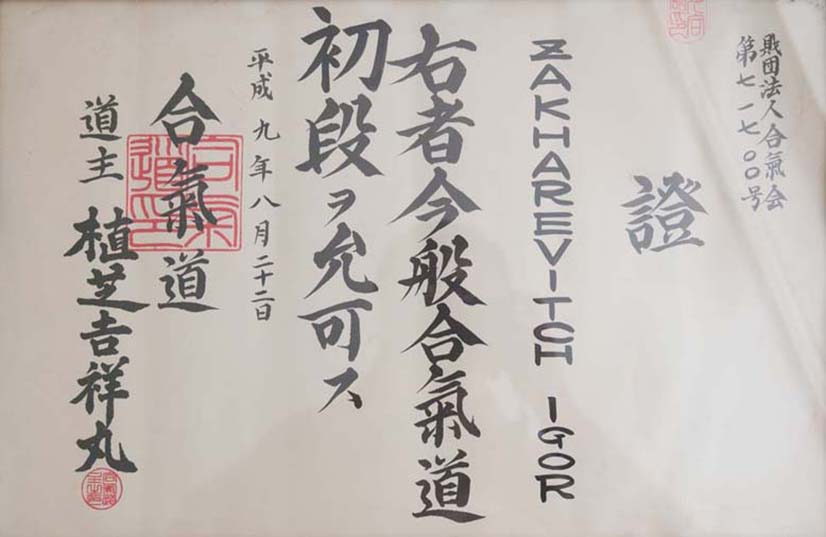 財団法人合氣会
第七一七〇〇号
證
ZAKHAREVITCH IGOR
右者今般合氣道
初段ヲ允可ス
平成九年八月二十二日
合氣道
道主 植芝吉祥丸